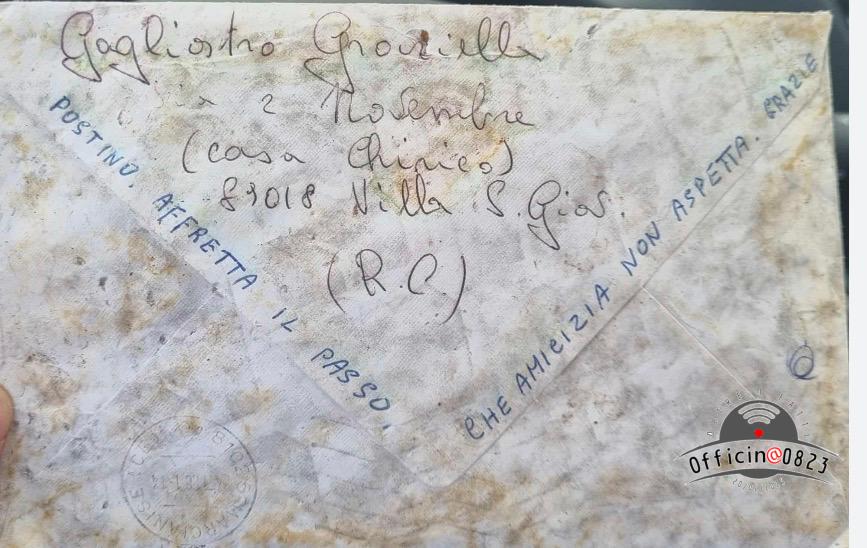 Gagliostro Graziella
Via 2 Novembre
(casa Chirico)
89018 Villa S. Giov.
(R.C.)
POSTINO, AFFRETTA IL PASSO,
CHE AMICIZIA NON ASPETTA. GRAZIE
6
Officin@0823